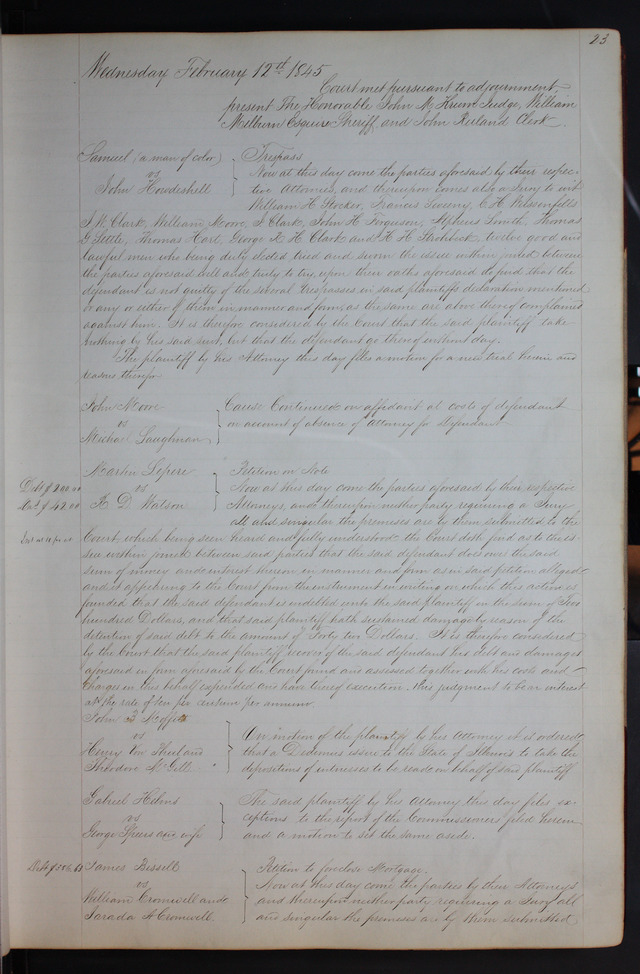 23
Wednesday February 12th 1845
Court met pursuant to adjournment,
present The Honorable John M Krum Judge, William
Milburn Esquire Sheriff and John Ruland Clerk
Samuel (a man of color) } Trespass
vs Now at this day come the parties aforesaid by their respec-
John Howdeshell tive Attornies, and thereupon comes also a Jury to wit
William H Stocker, Francis C H
J. W. Clark, William Moore, J Clark, John H Ferguson, Stephens Smith, Thomas
G Settle, Thomas Hart, George R H Clark and H H twelve good and
lawful men who being duly elected tried and sworn the issue within joined between
the parties aforesaid well and truly to try, upon their oaths aforesaid do find that the
defendant is not guilty of the several trespasses in said plaintiffs declaration mentioned
or any or either of them in manner and form as the same are above thereof complained
against him. It is therefore considered by the Court that the said plaintiff take
nothing by his said suit, but that the defendant go thereof without day.
The plaintiff by his Attorney this day files a motion for a new trial herein and
reasons therefor
John Moore } Cause Continued on affidavit at costs of defendant
vs on account of absence of Attorney for defendant.
Michael Laughman
Martin Lepere } Petition on Note
Debt $200.00 vs Now at this day come the parties aforesaid by their respective
Dam $42.00 R D Watson Attorneys, and thereupon neither party requiring a Jury
all and singular the premises are by them submitted to the
Court, which being seen heard and fully understood the Court doth find as to the is-
sue within joined between said parties that the said defendant does owe the said
sum of money and interest thereon in manner and form as in said petition alleged
and it appearing to the Court from the instrument in writing on which this action is
founded that the said defendant is indebted unto the said plaintiff in the sum of Two
hundred Dollars, and that said plaintiff hath sustained damage by reason of the
detention of said debt to the amount of Forty two Dollars. It is therefore considered
by the Court that the said plaintiff recover of the said defendant his debt and damages
aforesaid in form aforesaid by the Court found and assessed together with his costs and
charges in this behalf expended and have thereof execution. this judgment to bear interest
at the rate of ten per centum per annum
John B
vs } On motion of the plaintiff by his Attorney it is ordered
Henry Von that a Dedimus issue to the State of Illinois to take the
Theodore McGill depositions of witnesses to be read on behalf of said plaintiff
Gabriel Helms } The said plaintiff by his Attorney this day files ex-
vs ceptions to the report of the Commissioners filed herein
George Speers and wife and a motion to set the same aside.
James Bissell } Petition to foreclose Mortgage.
vs Now at this day come the parties by their Attorneys
William Cromwell and and thereupon neither party requiring a Jury all
A Cromwell. and singular the premises are by them submitted